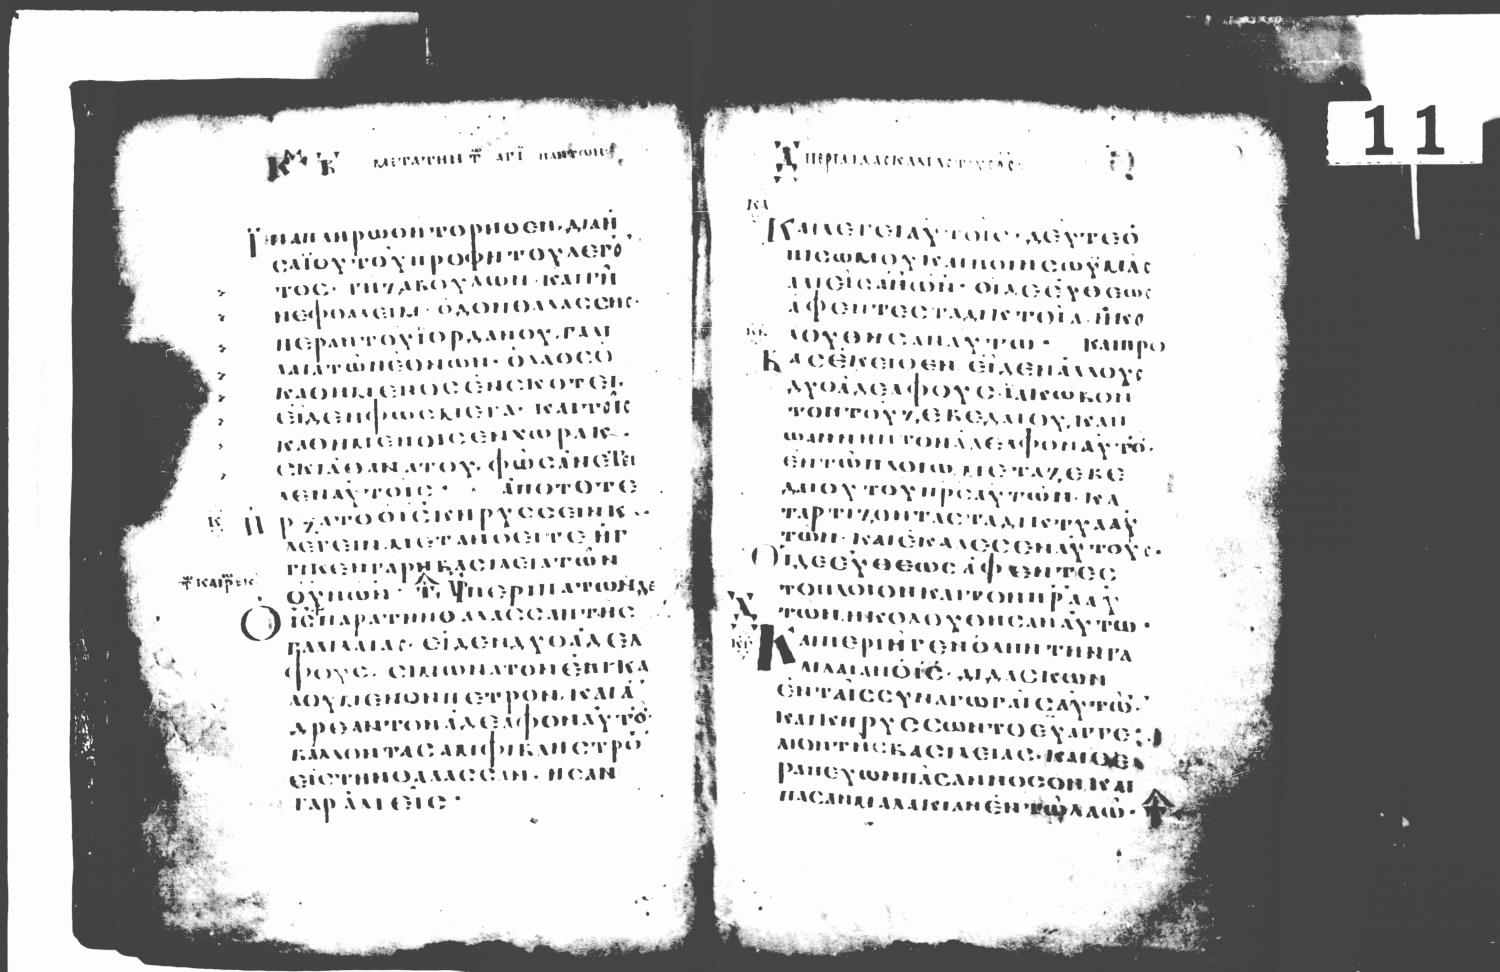 ΜΕΤΑ ΤΗΝ ΑΓΙ ΠΑΝΤΩΝ
ΙΝΑ ΠΛΗΡΩΘΗ ΤΟ ΡΗΘΕΝ ΔΙΑ Η
ΣΑΪΟΥ ΤΟΥ ΠΡΟΦΗΤΟΥ ΛΕΓΟ
ΤΟΣ· ΓΗ ΖΑΒΟΥΛΩΝ· ΚΑΙ ΓΗ
ΝΕΦΘΑΛΕΙΜ· ΟΔΟΝ ΘΑΛΑΣΣΗΣ·
ΠΕΡΑΝ ΤΟΥ ΪΟΡΔΑΝΟΥ, ΓΑΛΙ
ΛΑΙΑ ΤΩΝ ΕΘΝΩΝ· Ο ΛΑΟΣ Ο
ΚΑΘΗΜΕΝΟΣ ΕΝ ΣΚΟΤΕΙ
ΕΙΔΕΝ ΦΩΣ ΜΕΓΑ· ΚΑΙ ΤΟΙΣ
ΚΑΘΗΜΕΝΟΙΣ ΕΝ ΧΩΡΑ Κ
ΣΚΙΑ ΘΑΝΑΤΟΥ, ΦΩΣ ΑΝΕΤΕΙ
ΛΕΝ ΑΥΤΟΙΣ· ΑΠΟ ΤΟΤΕ
ΗΡΞΑΤΟ Ο ΙΣ ΚΗΡΥΣΣΕΙΝ Κ
ΛΕΓΕΙΝ, ΜΕΤΑΝΟΕΙΤΕ ΗΓ
ΓΙΚΕΝ ΓΑΡ Η ΒΑΣΙΛΕΙΑ ΤΩΝ
ΟΥΝΩΝ· ΠΕΡΙΠΑΤΩΝ ΔΕ
Ο ΙΣ ΠΑΡΑ ΤΗΝ ΘΑΛΑΣΣΑΝ ΤΗΣ
ΓΑΛΙΛΑΙΑΣ· ΕΙΔΕΝ ΔΥΟ ΑΔΕΛ
ΦΟΥΣ· ΣΙΜΩΝΑ ΤΟΝ ΕΠΙΚΑ
ΛΟΥΜΕΝΟΝ ΠΕΤΡΟΝ, ΚΑΙ Α
ΔΡΕΑΝ ΤΟΝ ΑΔΕΛΦΟΝ ΑΥΤΟ
ΒΑΛΛΟΝΤΑΣ ΑΜΦΙΒΛΗΣΤΡΟ
ΕΙΣ ΤΗΝ ΘΑΛΑΣΣΑΝ· ΗΣΑΝ
ΓΑΡ ΑΛΙΕΙΣ·
ΚΑ
ΚΑΙ ΛΕΓΕΙ ΑΥΤΟΙΣ· ΔΕΥΤΕ Ο
ΠΙΣΩ ΜΟΥ ΚΑΙ ΠΟΙΗΣΩ ΥΜΑΣ
ΑΛΙΕΙΣ ΑΝΩΝ· ΟΙ ΔΕ ΕΥΘΕΩΣ
ΑΦΕΝΤΕΣ ΤΑ ΔΙΚΤΟΙΑ, ΗΚΟ
ΛΟΥΘΗΣΑΝ ΑΥΤΩ· ΚΑΙ ΠΡΟ
ΚΑΣ ΕΚΕΙΘΕΝ ΕΙΔΕΝ ΑΛΛΟΥΣ
ΔΥΟ ΑΔΕΛΦΟΥΣ· ΙΑΚΩΒΟΝ
ΤΟΝ ΤΟΥ ΖΕΒΕΔΑΙΟΥ, ΚΑΙΙ
ΩΑΝΝΗΝ ΤΟΝ ΑΔΕΛΦΟΝ ΑΥΤΟ·
ΕΝ ΤΩ ΠΛΟΙΩ ΜΕΤΑ ΖΕΒΕ
ΔΑΙΟΥ ΤΟΥ ΠΡΣ ΑΥΤΩΝ· ΚΑ
ΤΑΡΤΙΖΟΝΤΑΣ ΤΑ ΔΙΚΤΥΑ ΑΥ
ΤΩΝ· ΚΑΙ ΕΚΑΛΕΣΕΝ ΑΥΤΟΥΣ·
ΟΙ ΔΕ ΕΥΘΕΩΣ ΑΦΕΝΤΕΣ
ΤΟ ΠΛΟΙΟΝ ΚΑΙ ΤΟΝ ΠΡΑ ΑΥ
ΤΩΝ, ΗΚΟΛΟΥΘΗΣΑΝ ΑΥΤΩ·
ΚΑΙ ΠΕΡΙΗΓΕΝ ΟΛΗΝ ΤΗΝ ΓΑ
ΛΙΛΑΙΑΝ Ο ΙΣ· ΔΙΔΑΣΚΩΝ
ΕΝ ΤΑΙΣ ΣΥΝΑΓΩΓΑΙΣ ΑΥΤΩ·
ΚΑΙ ΚΗΡΥΣΣΩΝ ΤΟ ΕΥΑΓΓΕ
ΛΙΟΝ ΤΗΣ ΒΑΣΙΛΕΙΑΣ· ΚΑΙ ΘΕ
ΡΑΠΕΥΩΝ ΠΑΣΑΝ ΝΟΣΟΝ ΚΑΙ
ΠΑΣΑΝ ΜΑΛΑΚΙΑΝ ΕΝ ΤΩ ΛΑΩ·
11